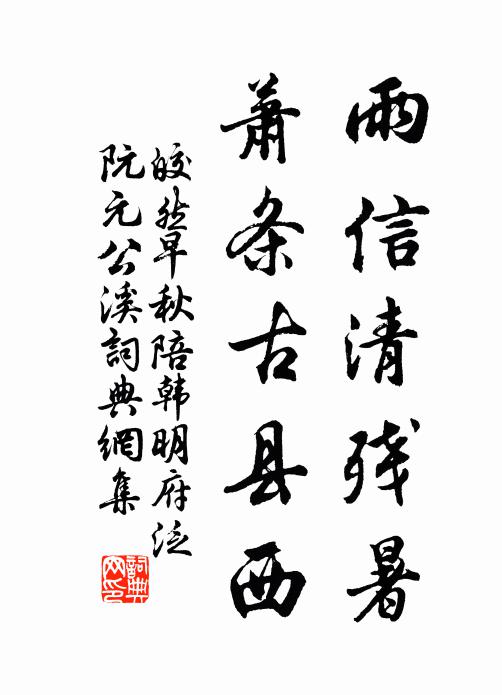 雨信清残暑
萧条古县西
皎然早秋陪韩明府泛
阮元公溪詞典網集
詞典网印